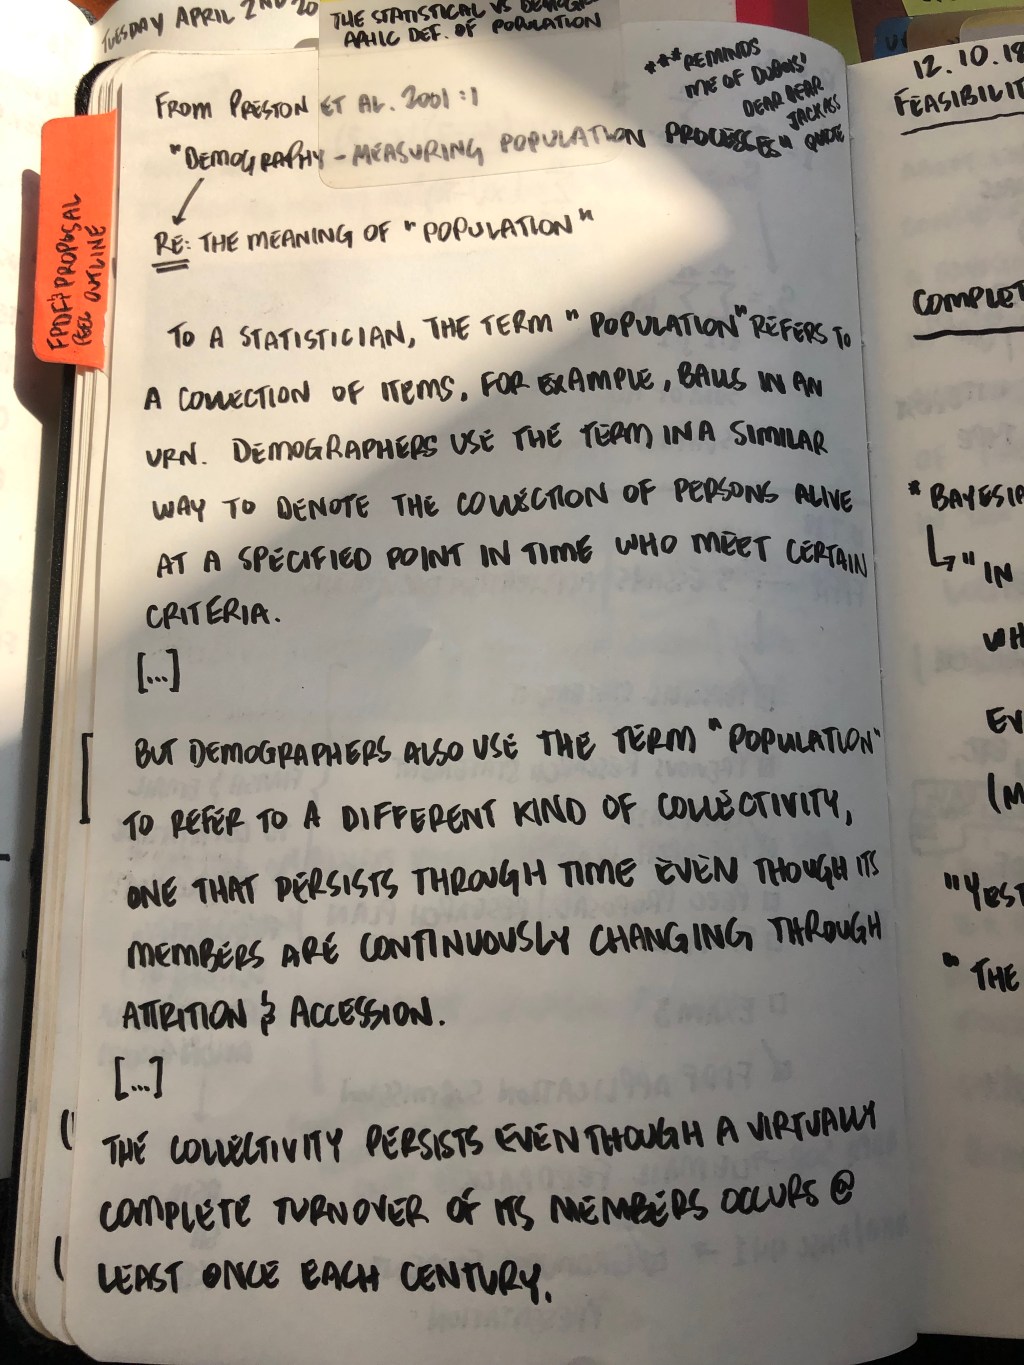 TUESDAY APRIL 2ND 20
THE STATISTICAL VS DEMOGR
APHIC DEF. OF POPULATION
***REMINDS
ME OF DUBOIS'
DEAR DEAR
JACKASS
QUOTE
FROM PRESTON ET AL. 2001:1
"DEMOGRAPHY - MEASURING POPULATION PROCESSES"
RE: THE MEANING OF "POPULATION"
FPDF & PROPOSAL
OUTLINE
TO A STATISTICIAN, THE TERM "POPULATION" REFERS TO
A COLLECTION OF ITEMS, FOR EXAMPLE, BALLS IN AN
URN. DEMOGRAPHERS USE THE TERM IN A SIMILAR
WAY TO DENOTE THE COLLECTION OF PERSONS ALIVE
AT A SPECIFIED POINT IN TIME WHO MEET CERTAIN
CRITERIA.
[...]
BUT DEMOGRAPHERS ALSO USE THE TERM "POPULATION"
TO REFER TO A DIFFERENT KIND OF COLLECTIVITY,
ONE THAT PERSISTS THROUGH TIME EVEN THOUGH ITS
MEMBERS ARE CONTINUOUSLY CHANGING THROUGH
ATTRITION & ACCESSION.
[...]
THE COLLECTIVITY PERSISTS EVEN THOUGH A VIRTUALLY
COMPLETE TURNOVER OF ITS MEMBERS OCCURS @
LEAST ONCE EACH CENTURY.
12.10.18
FEASIBILIT
COMPLET
* BAYESIA
"IN
WH
EV
(M
"YEST
"THE